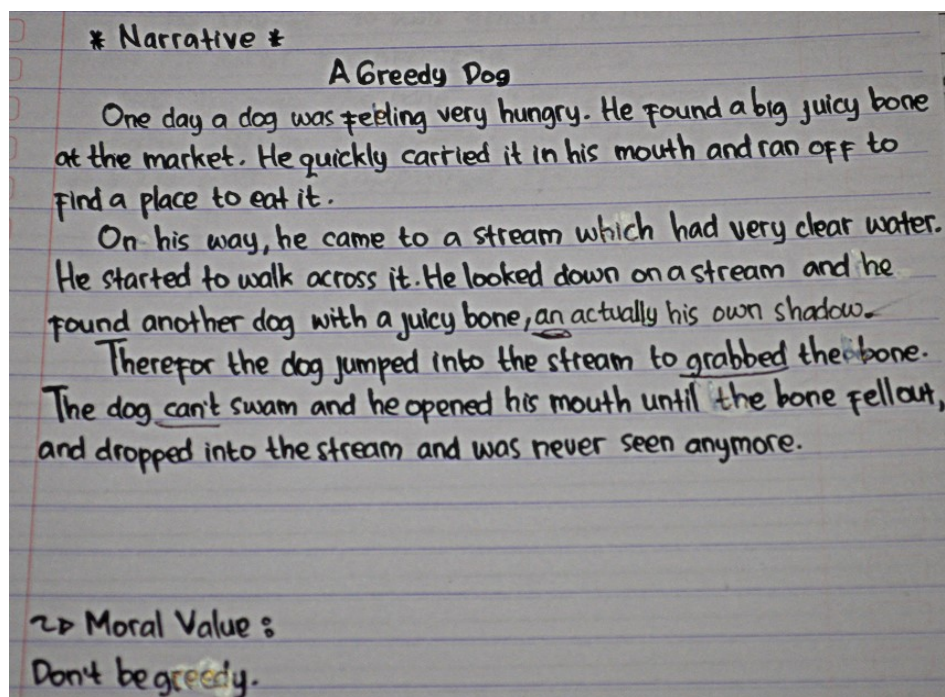 * Narrative *
A Greedy Dog
One day a dog was feeling very hungry. He found a big juicy bone
at the market. He quickly carried it in his mouth and ran off to
find a place to eat it.
On his way, he came to a stream which had very clear water.
He started to walk across it. He looked down on a stream and he
found another dog with a juicy bone, an actually his own shadow.
Therefor the dog jumped into the stream to grabbed the bone.
The dog can't swam and he opened his mouth until the bone fell out,
and dropped into the stream and was never seen anymore.
Moral Value :
Don't be greedy.